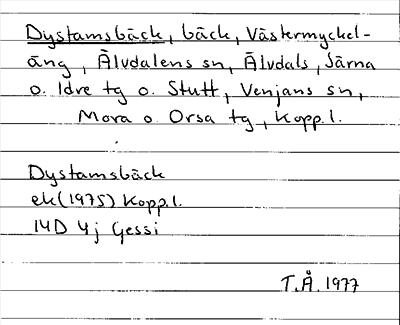 Dystamsbäck, bäck, Västermyckel-
äng, Älvdalens sn, Älvdals, Särna
o. Idre tg o. Stutt, Venjans sn,
Mora o. Orsa tg, Kopp. l.
Dystamsbäck
ek (1975) Kopp. l.
14D 4j Gessi
T.Å. 1977